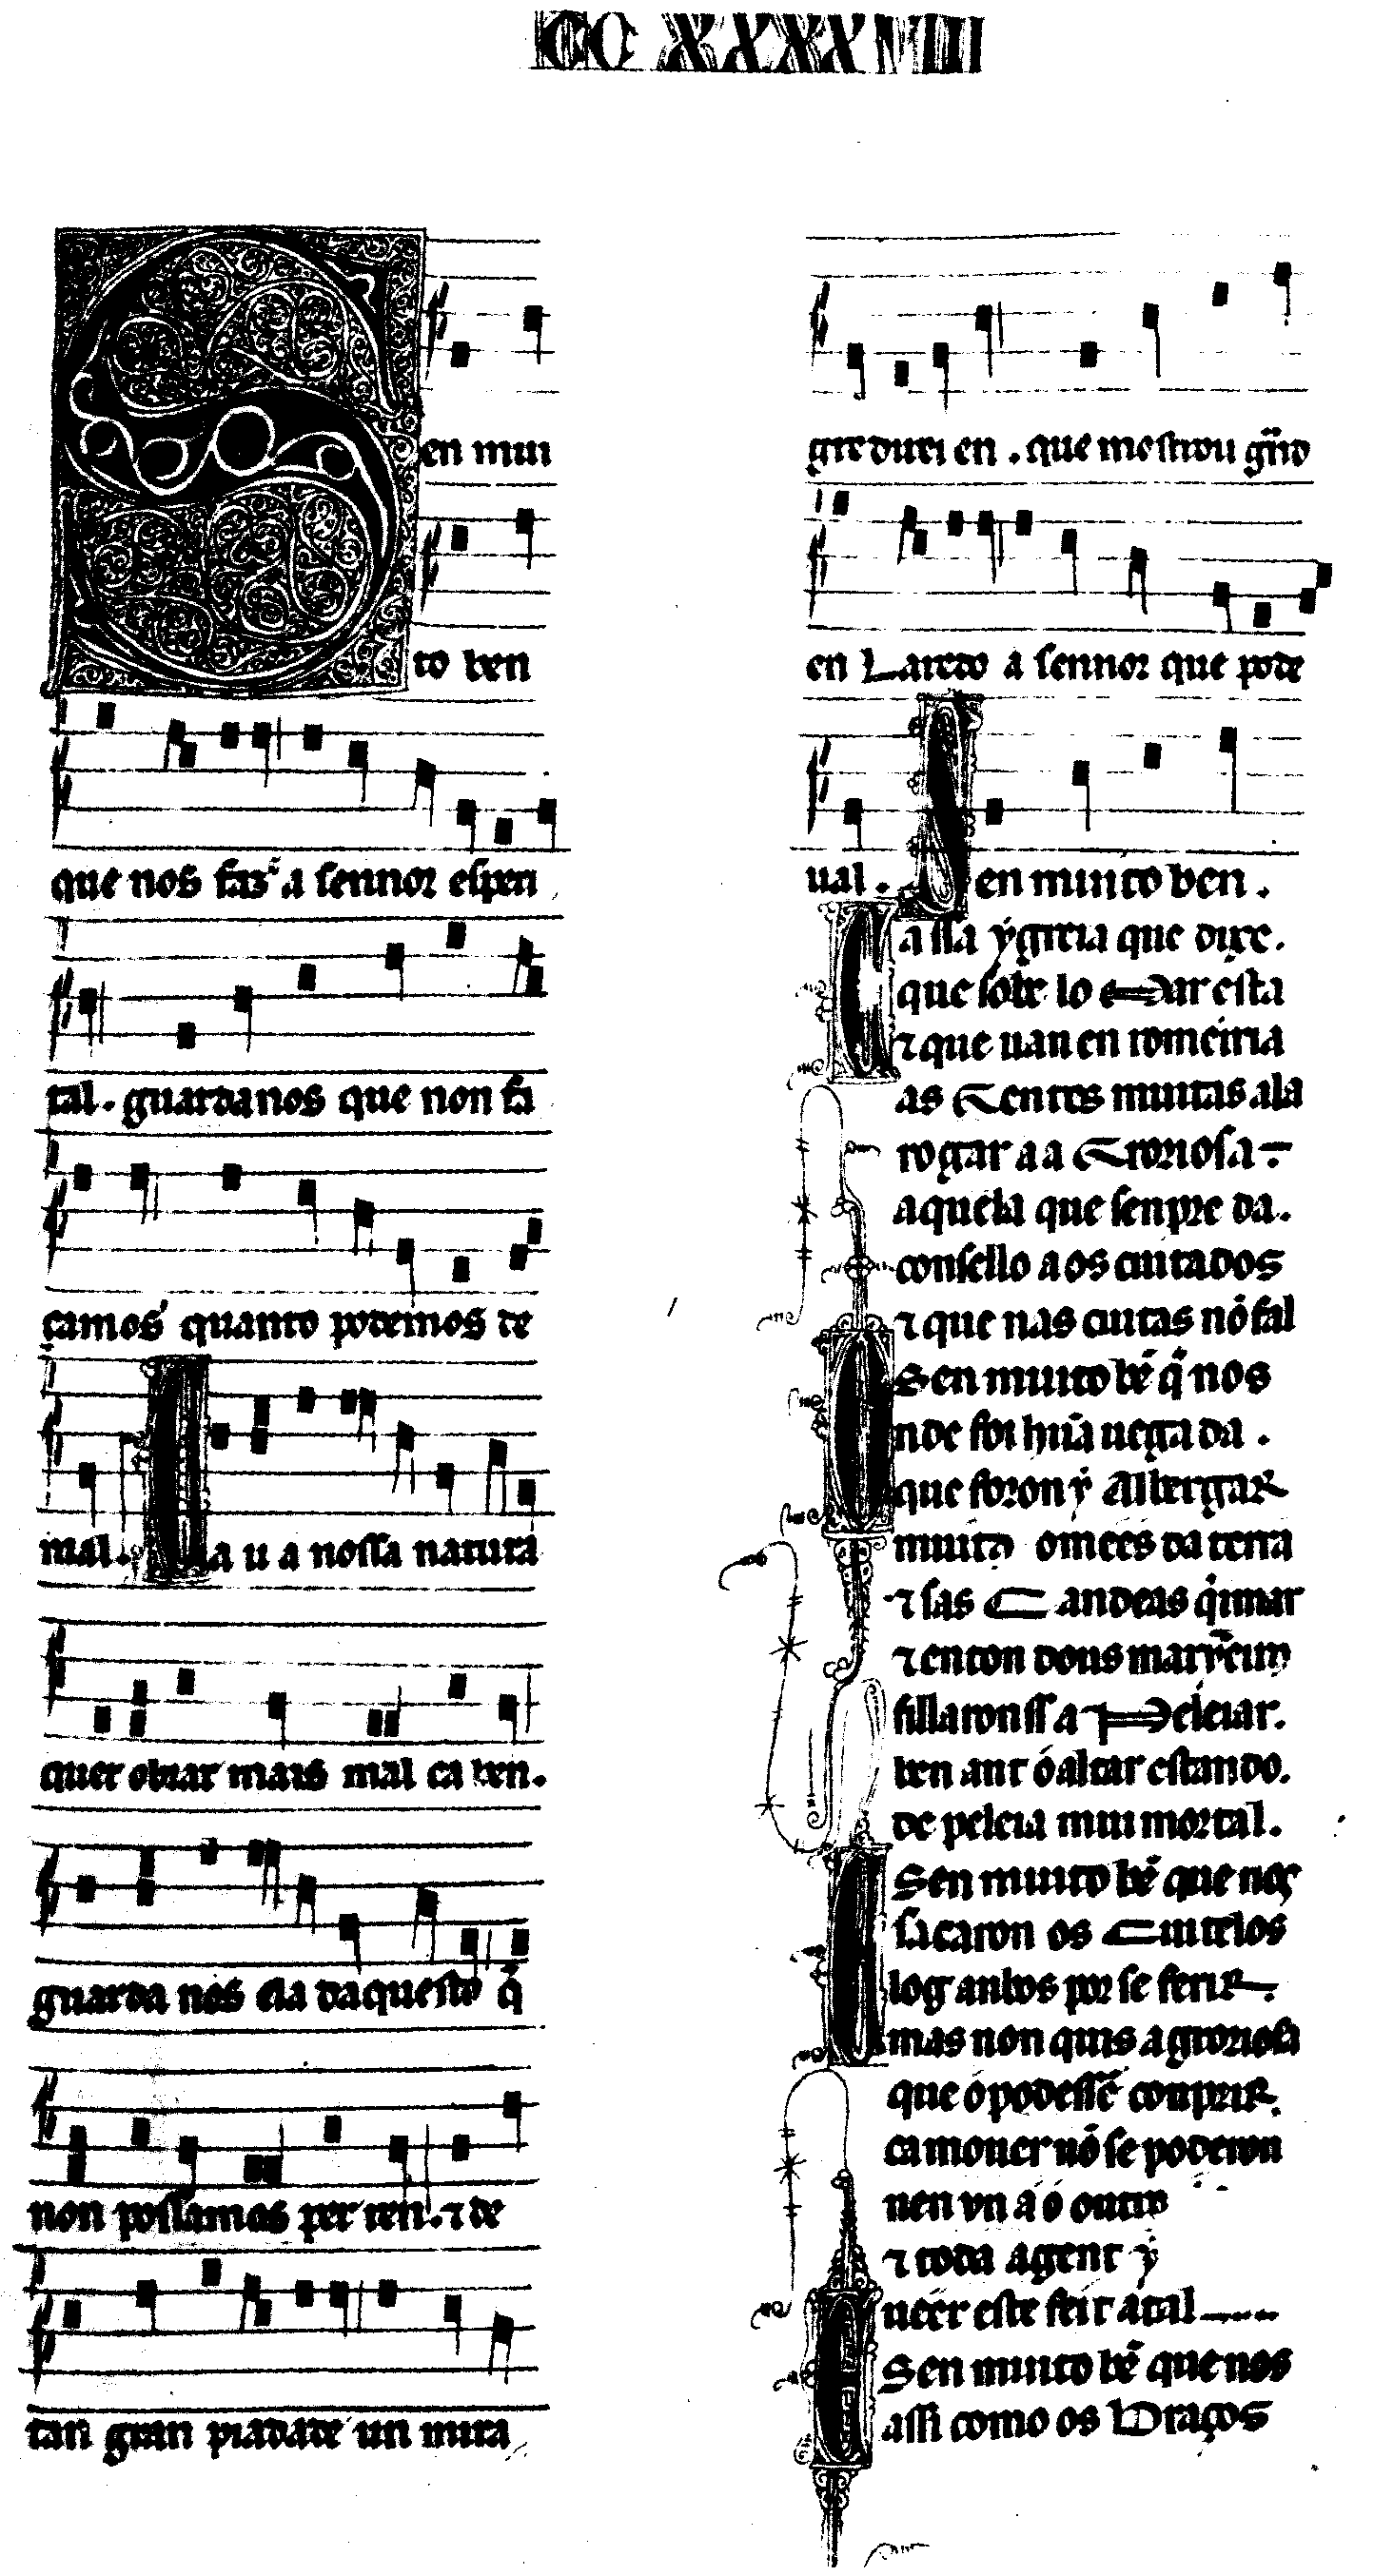 CC XXXX VIII
Sen mui
to ben
que nos faz a sennor espeti
tal. guardanos que non fa
çamos quanto podemos de
mal. Ca u a nossa natura
quer obrar mais mal ca ben.
guarda nos ela daquesto q̄
non possamos per ren. ⁊ de
tan gran piadade un mira
gre duri en. que mostrou
en Laredo a sennor que pode
ual. Sen muito ben.
assa ygreia que dixe.
que sobre lo Mar esta
⁊ que uan en romeiria
as Gentes muitas ala
rogar aa Groriosa
aquela que senpre da.
consello aos cuitados
⁊ que nas cuitas nō fal
Sen muito bē q̄ nos
Onde foi hũa uegada.
que foron y Albergar
muitos omees da terra
⁊ sas Candeas
⁊ enton dous
fillaronss a Peleiar.
ben ant o altar estando.
de peleia mui mortal.
Sen muito bē que nos
sacaron os Cuitelos
log anbos por se ferir
mas non quis a groriosa
que o podessē conprir.
ca mouer nō se poderon
nen un a o outro
⁊ toda a gent y
ueer este feit atal
Sen muito bē que nos
assi como os Braços